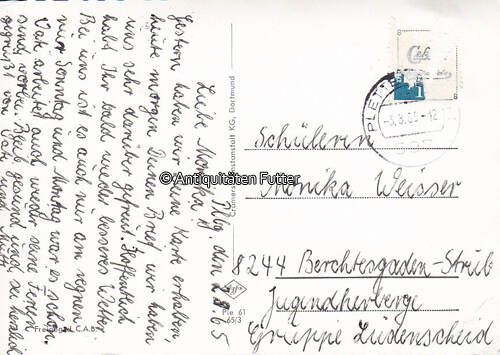 Plbg. den 2.8.65
Liebe Monika!
Gestern haben wir Deine Karte erhalten,
heute morgen Deinen Brief, wir haben
uns sehr darüber gefreut. Hoffentlich
habt Ihr bald wieder besseres Wetter.
Bei uns ist es auch nur am regnen
nur Sonntag und Montag war es schön.
Vati arbeitet auch wieder seine Ferien
sind vorbei. Bleib gesund und sei herzlich
gegrüßt von Vati und Mutti
Freigabe L.C.A.B.
Cramers Kunstanstalt KG, Dortmund
Ple 61
65/3
PLETT
-3.8.65-12
Schülerin
Monika Weisser
8244 Berchtesgaden-Strub
Jugendherberge
Gruppe Lüdenscheid
© Antiquitäten Futter